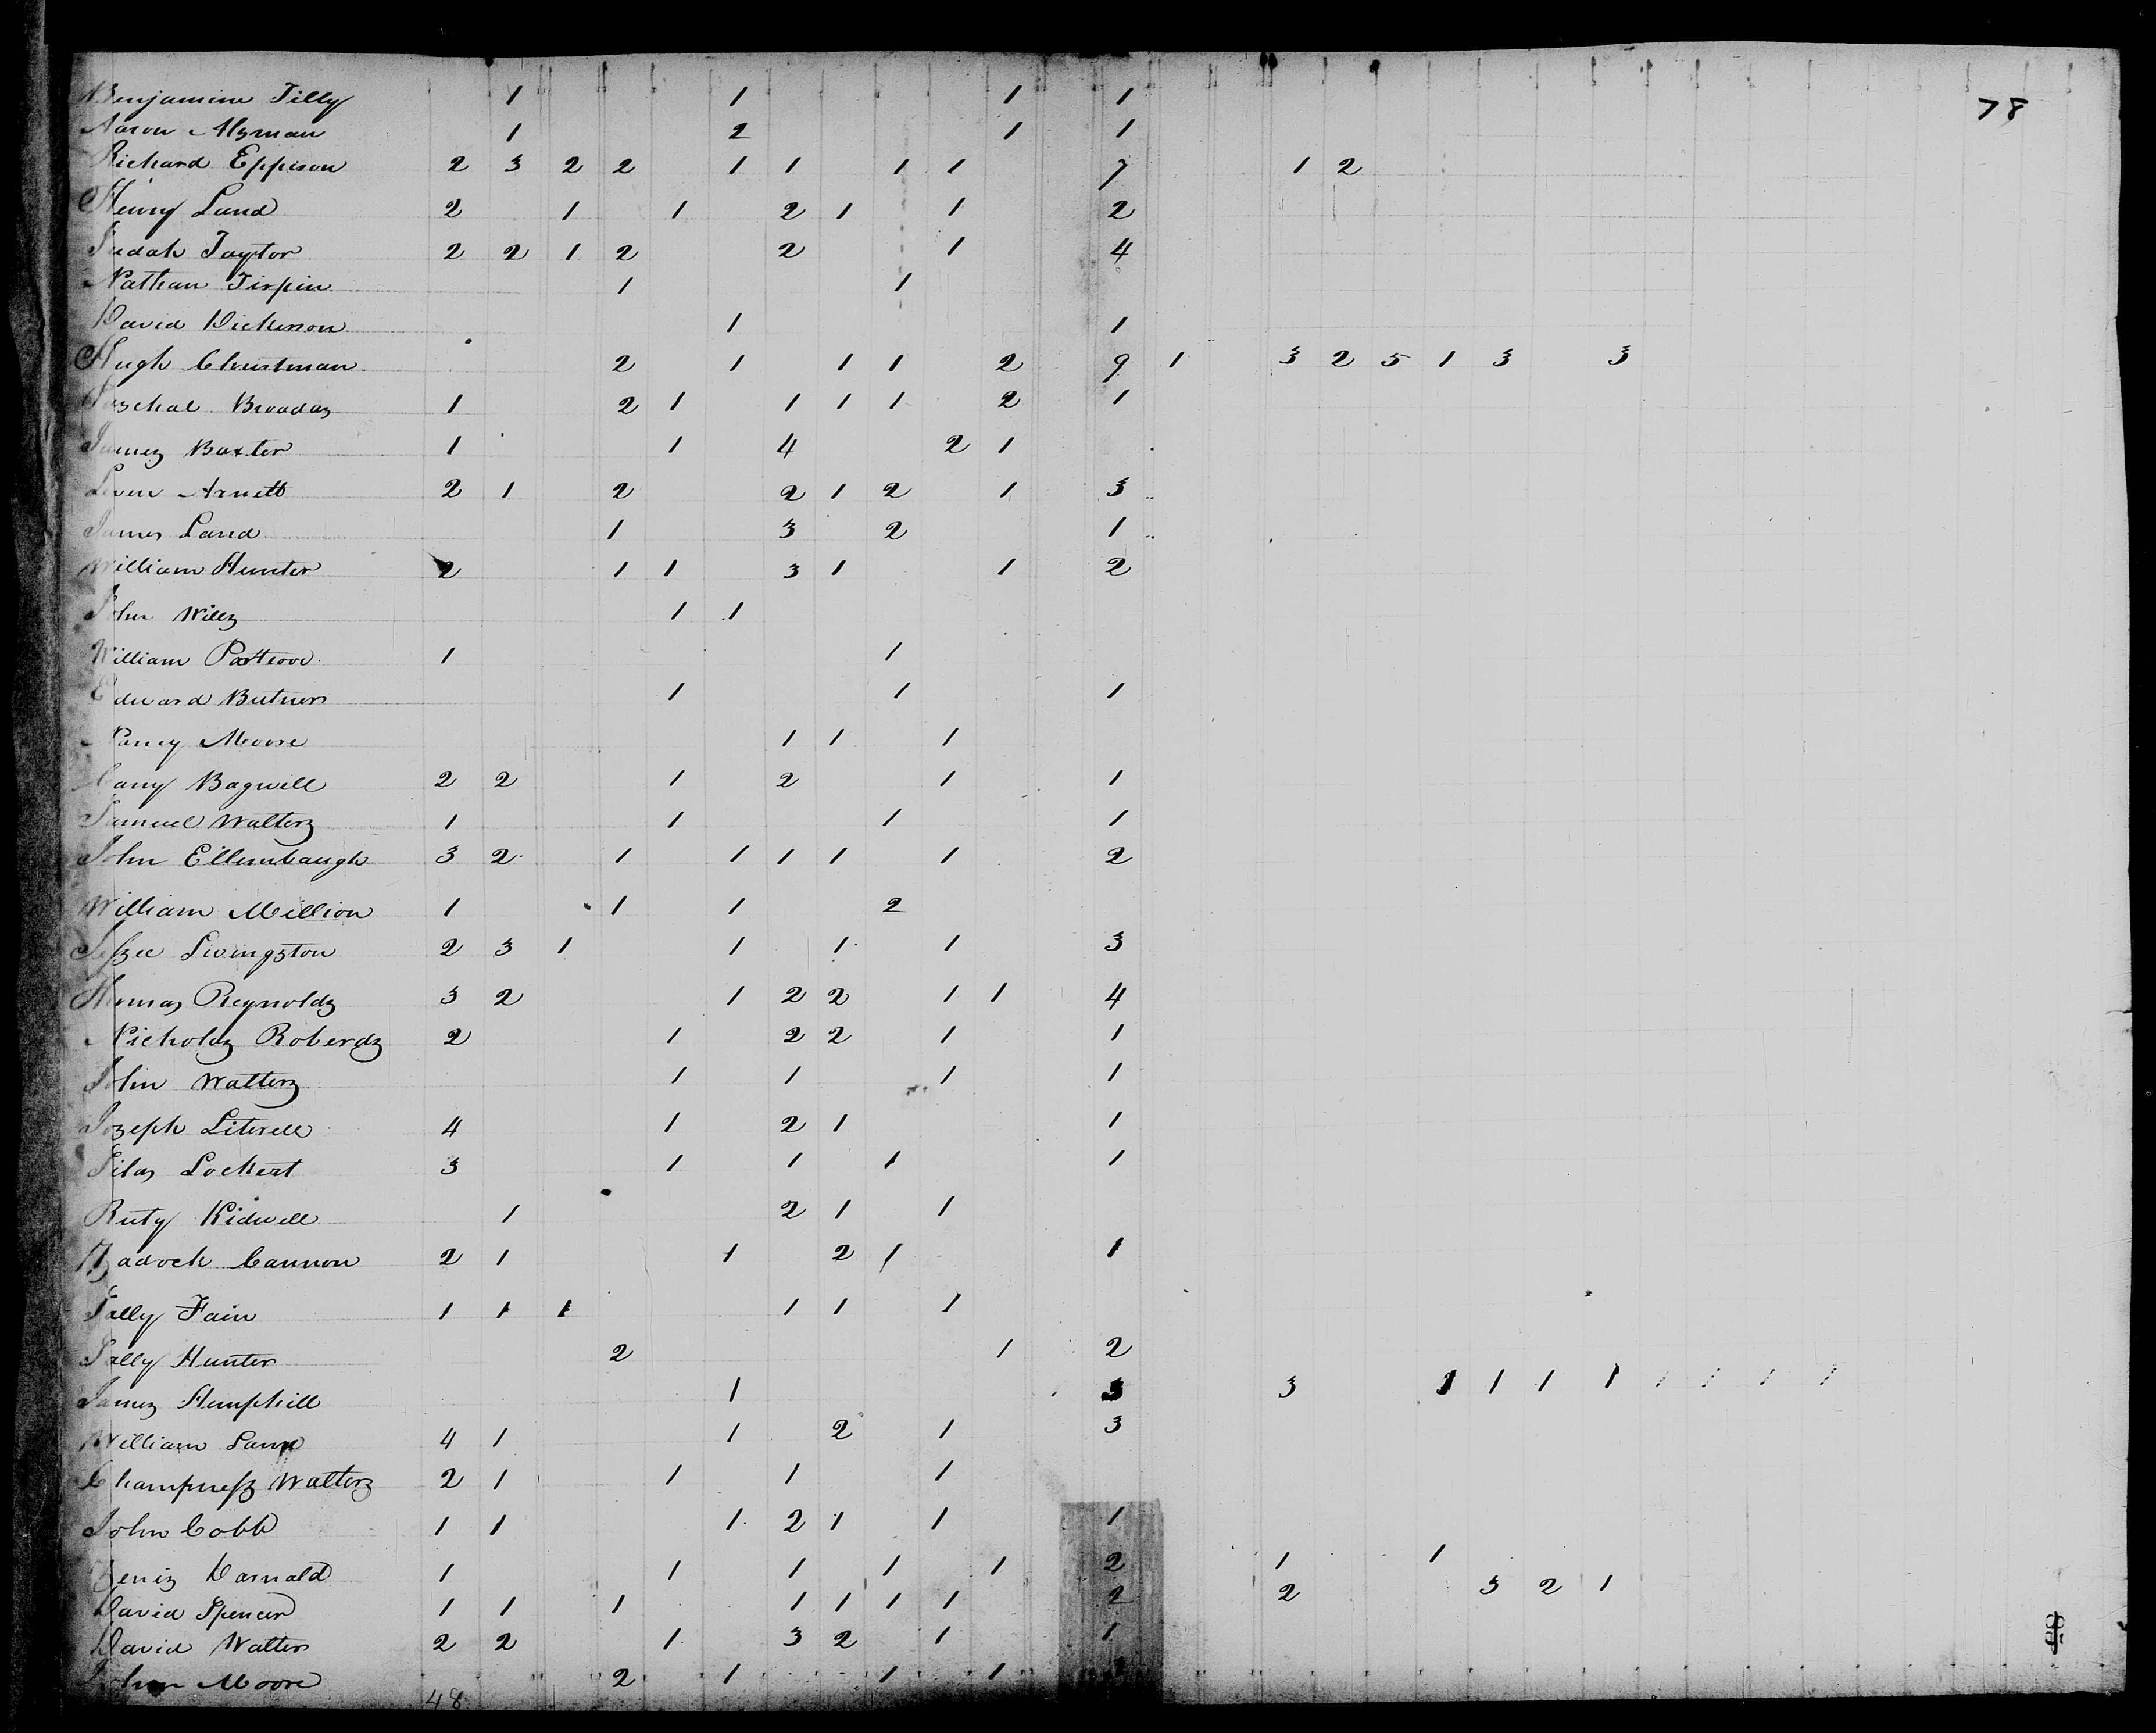 78
Benjamine Tilly 1 1 1 1
Aaron Alzman 1 2 1 1
Richard Eppison 2 3 2 2 1 1 1 1 7 1 2
Henry Land 2 1 1 2 1 1 2
Judah Taylor 2 2 1 2 2 1 4
Nathan Tirpin 1 1
David Dickenson 1 1
Hugh Christman 2 1 1 1 2 9 1 3 2 5 1 3 3
Paschal Broadas 1 2 1 1 1 1 2 1
James Baxter 1 1 4 2 1
Leven Arnett 2 1 2 2 1 2 1 3
James Land 1 3 2 1
William Hunter 2 1 1 3 1 1 2
John Wills 1 1
William 1 1
Edward Butner 1 1 1
Nancy Moore 1 1 1
Cary Bagwell 2 2 1 2 1 1
Samuel Walters 1 1 1 1
John Ellumbaugh 3 2 1 1 1 1 1 2
William Million 1 1 1 2
Jessee Livingston 2 3 1 1 1 1 3
Thomas Reynolds 3 2 1 2 2 1 1 4
Nicholds Roberds 2 1 2 2 1 1
John Walters 1 1 1 1
Joseph Literell 4 1 2 1 1
Silas Lockert 3 1 1 1 1
Ruty Kidwell 1 2 1 1
Zadock Cannon 2 1 1 2 1 1
Sally Fain 1 1 1 1 1 1
Sally Hunter 2 1 2
James Hemphill 1 3 3 1 1 1 1 1 1 1 1
William Lane 4 1 1 2 1 3
Champness Walters 2 1 1 1 1
John Cobb 1 1 1 2 1 1 1
Darnald 1 1 1 1 1 2 1 1
David Spencer 1 1 1 1 1 1 1 2 2 3 2 1
David Walters 2 2 1 3 2 1 1
John Moore 2 1 1 1 1
48